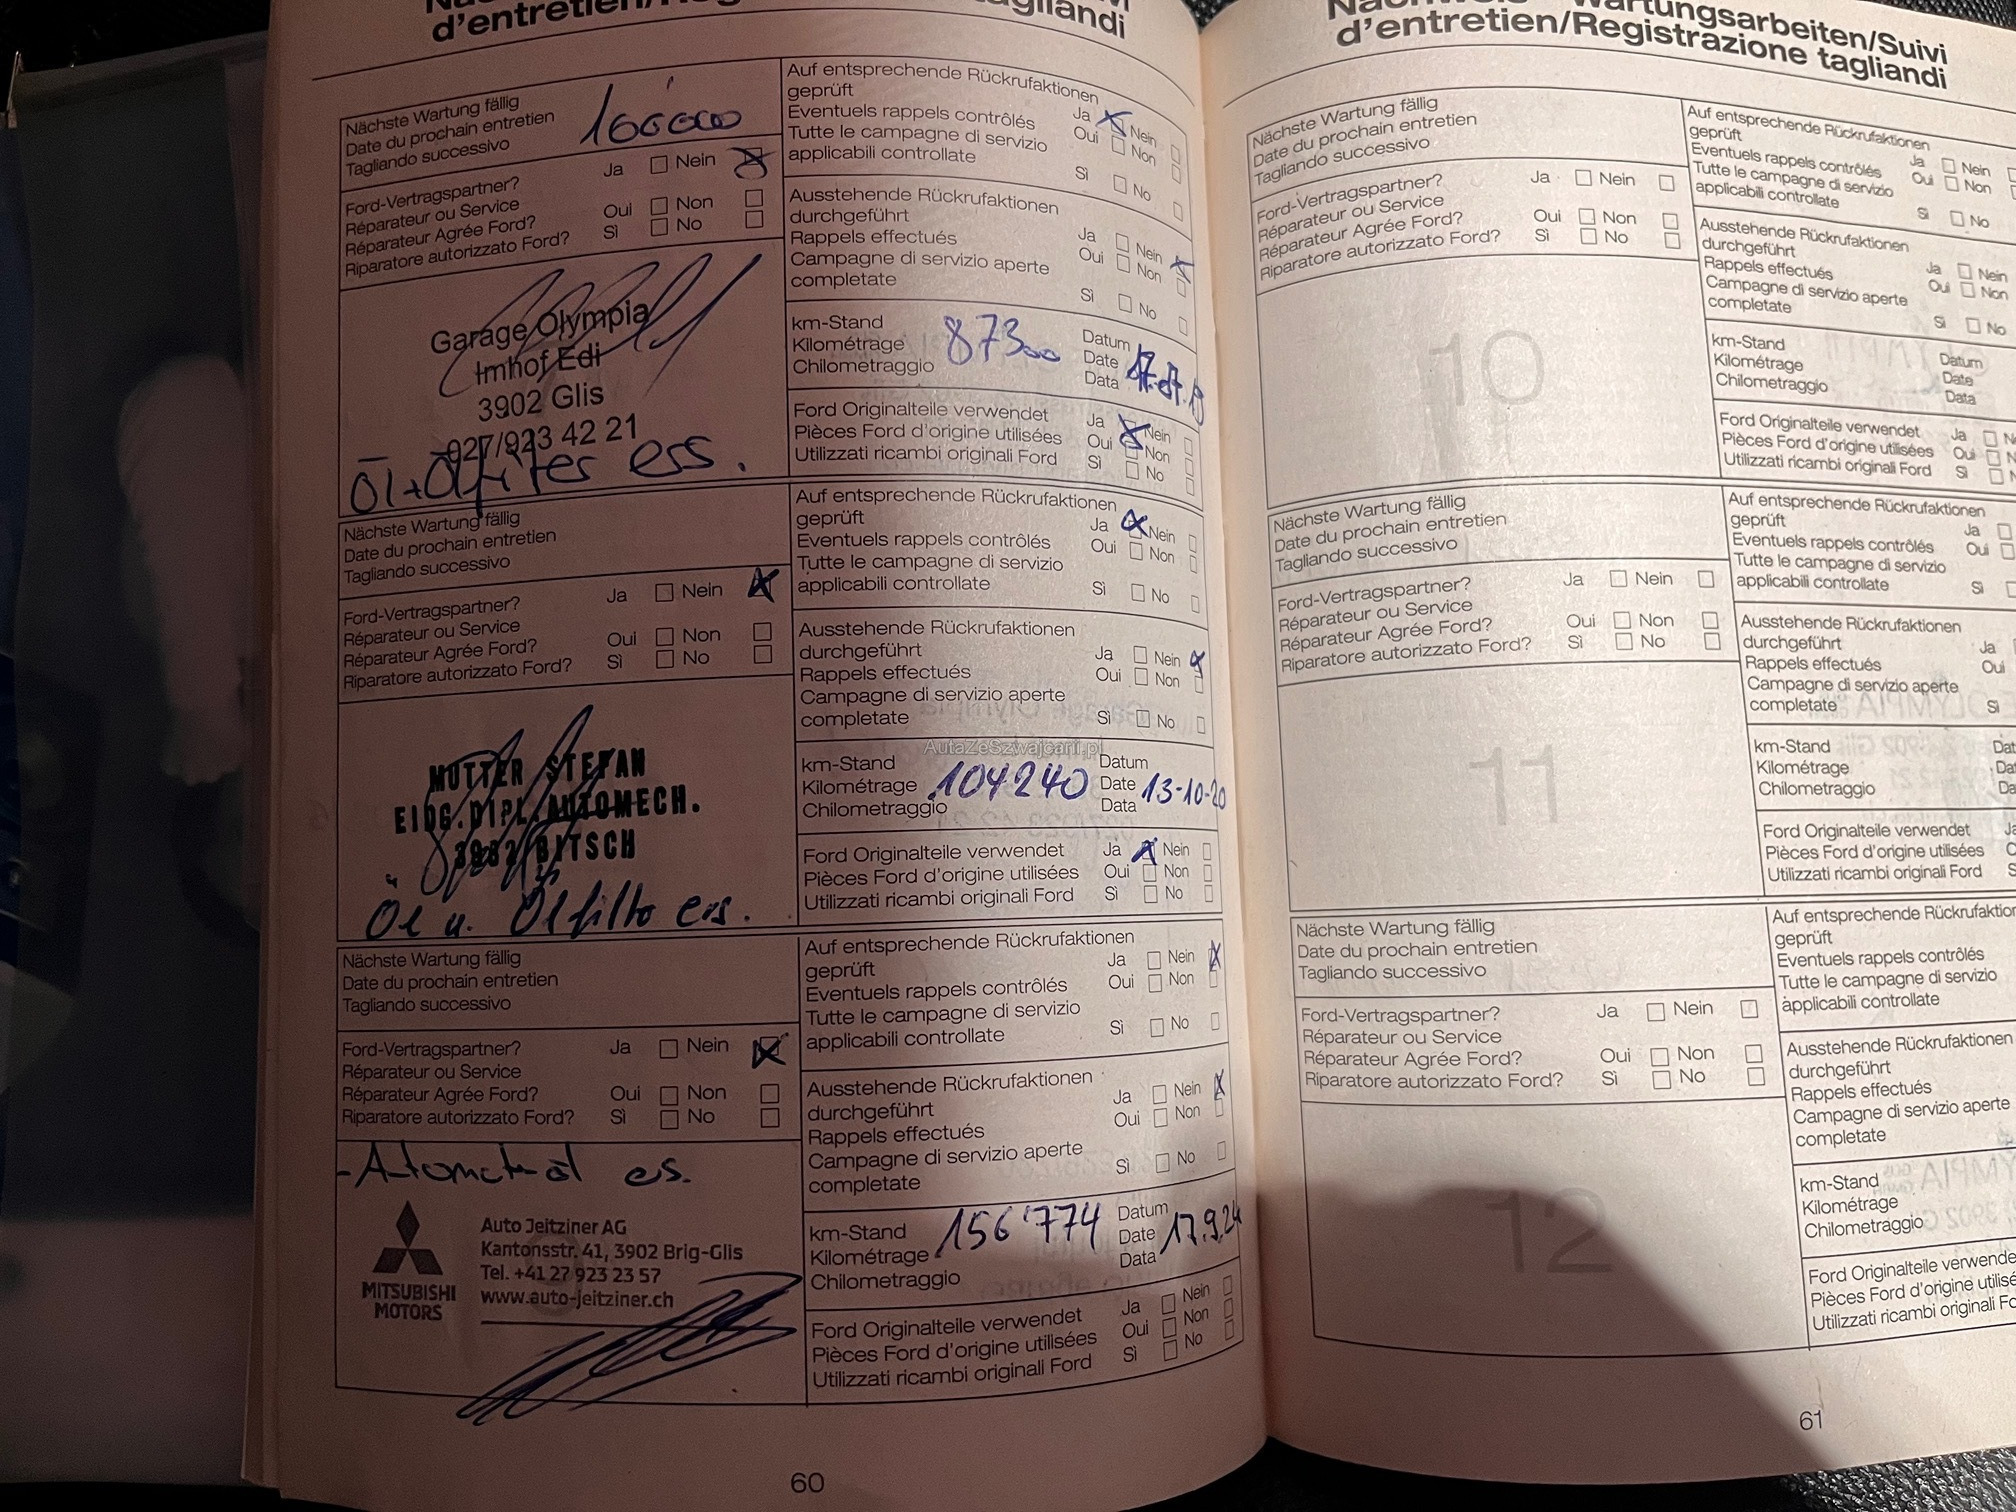 d'entretien/
tagliandi
Nächste Wartung fällig
Date du prochain entretien
Tagliando successivo
100'000
Ford-Vertragspartner?
Réparateur ou Service
Réparateur Agrée Ford?
Riparatore autorizzato Ford?
Ja Nein
Oui Non
Sì No
Garage Olympia
Imhof Edi
3902 Glis
027/923 42 21
Öl+Ölfilter ers.
Auf entsprechende Rückrufaktionen
geprüft
Eventuels rappels contrôlés
Tutte le campagne di servizio
applicabili controllate
Ja Nein
Oui Non
Sì No
Ausstehende Rückrufaktionen
durchgeführt
Rappels effectués
Campagne di servizio aperte
completate
Ja Nein
Oui Non
Sì No
km-Stand
Kilométrage
Chilometraggio
87300
Datum
Date
Data
Ford Originalteile verwendet
Pièces Ford d'origine utilisées
Utilizzati ricambi originali Ford
Ja Nein
Oui Non
Sì No
Nächste Wartung fällig
Date du prochain entretien
Tagliando successivo
Ford-Vertragspartner?
Réparateur ou Service
Réparateur Agrée Ford?
Riparatore autorizzato Ford?
Ja Nein
Oui Non
Sì No
MUTTER STEFAN
EIDG.DIPL.AUTOMECH.
3982 BITSCH
Öl u. Ölfilter ers.
Auf entsprechende Rückrufaktionen
geprüft
Eventuels rappels contrôlés
Tutte le campagne di servizio
applicabili controllate
Ja Nein
Oui Non
Sì No
Ausstehende Rückrufaktionen
durchgeführt
Rappels effectués
Campagne di servizio aperte
completate
Ja Nein
Oui Non
Sì No
AutaZeSzwajcarii.pl
km-Stand
Kilométrage
Chilometraggio
104240
Datum
Date
Data
13-10-20
Ford Originalteile verwendet
Pièces Ford d'origine utilisées
Utilizzati ricambi originali Ford
Ja Nein
Oui Non
Sì No
Nächste Wartung fällig
Date du prochain entretien
Tagliando successivo
Ford-Vertragspartner?
Réparateur ou Service
Réparateur Agrée Ford?
Riparatore autorizzato Ford?
Ja Nein
Oui Non
Sì No
es.
MITSUBISHI
MOTORS
Auto Jeitziner AG
Kantonsstr. 41, 3902 Brig-Glis
Tel. +41 27 923 23 57
www.auto-jeitziner.ch
Auf entsprechende Rückrufaktionen
geprüft
Eventuels rappels contrôlés
Tutte le campagne di servizio
applicabili controllate
Ja Nein
Oui Non
Sì No
Ausstehende Rückrufaktionen
durchgeführt
Rappels effectués
Campagne di servizio aperte
completate
Ja Nein
Oui Non
Sì No
km-Stand
Kilométrage
Chilometraggio
156'774
Datum
Date
Data
17.9.24
Ford Originalteile verwendet
Pièces Ford d'origine utilisées
Utilizzati ricambi originali Ford
Ja Nein
Oui Non
Sì No
60
Wartungsarbeiten/Suivi
d'entretien/Registrazione tagliandi
Nächste Wartung fällig
Date du prochain entretien
Tagliando successivo
Ford-Vertragspartner?
Réparateur ou Service
Réparateur Agrée Ford?
Riparatore autorizzato Ford?
Ja Nein
Oui Non
Sì No
10
Auf entsprechende Rückrufaktionen
geprüft
Eventuels rappels contrôlés
Tutte le campagne di servizio
applicabili controllate
Ja Nein
Oui Non
Sì No
Ausstehende Rückrufaktionen
durchgeführt
Rappels effectués
Campagne di servizio aperte
completate
Ja Nein
Oui Non
Sì No
km-Stand
Kilométrage
Chilometraggio
Datum
Date
Data
Ford Originalteile verwendet
Pièces Ford d'origine utilisées
Utilizzati ricambi originali Ford
Ja
Oui
Sì
Nächste Wartung fällig
Date du prochain entretien
Tagliando successivo
Ford-Vertragspartner?
Réparateur ou Service
Réparateur Agrée Ford?
Riparatore autorizzato Ford?
Ja Nein
Oui Non
Sì No
11
Auf entsprechende Rückrufaktionen
geprüft
Eventuels rappels contrôlés
Tutte le campagne di servizio
applicabili controllate
Ja
Oui
Sì
Ausstehende Rückrufaktionen
durchgeführt
Rappels effectués
Campagne di servizio aperte
completate
Ja
Oui
Sì
km-Stand
Kilométrage
Chilometraggio
Ford Originalteile verwendet
Pièces Ford d'origine utilisées
Utilizzati ricambi originali Ford
Nächste Wartung fällig
Date du prochain entretien
Tagliando successivo
Ford-Vertragspartner?
Réparateur ou Service
Réparateur Agrée Ford?
Riparatore autorizzato Ford?
Ja Nein
Oui Non
Sì No
12
Auf entsprechende
geprüft
Eventuels rappels contrôlés
Tutte le campagne di servizio
applicabili controllate
Ausstehende Rückrufaktionen
durchgeführt
Rappels effectués
Campagne di servizio aperte
completate
km-Stand
Kilométrage
Chilometraggio
Ford Originalteile
Pièces Ford d'origine
Utilizzati ricambi originali
61